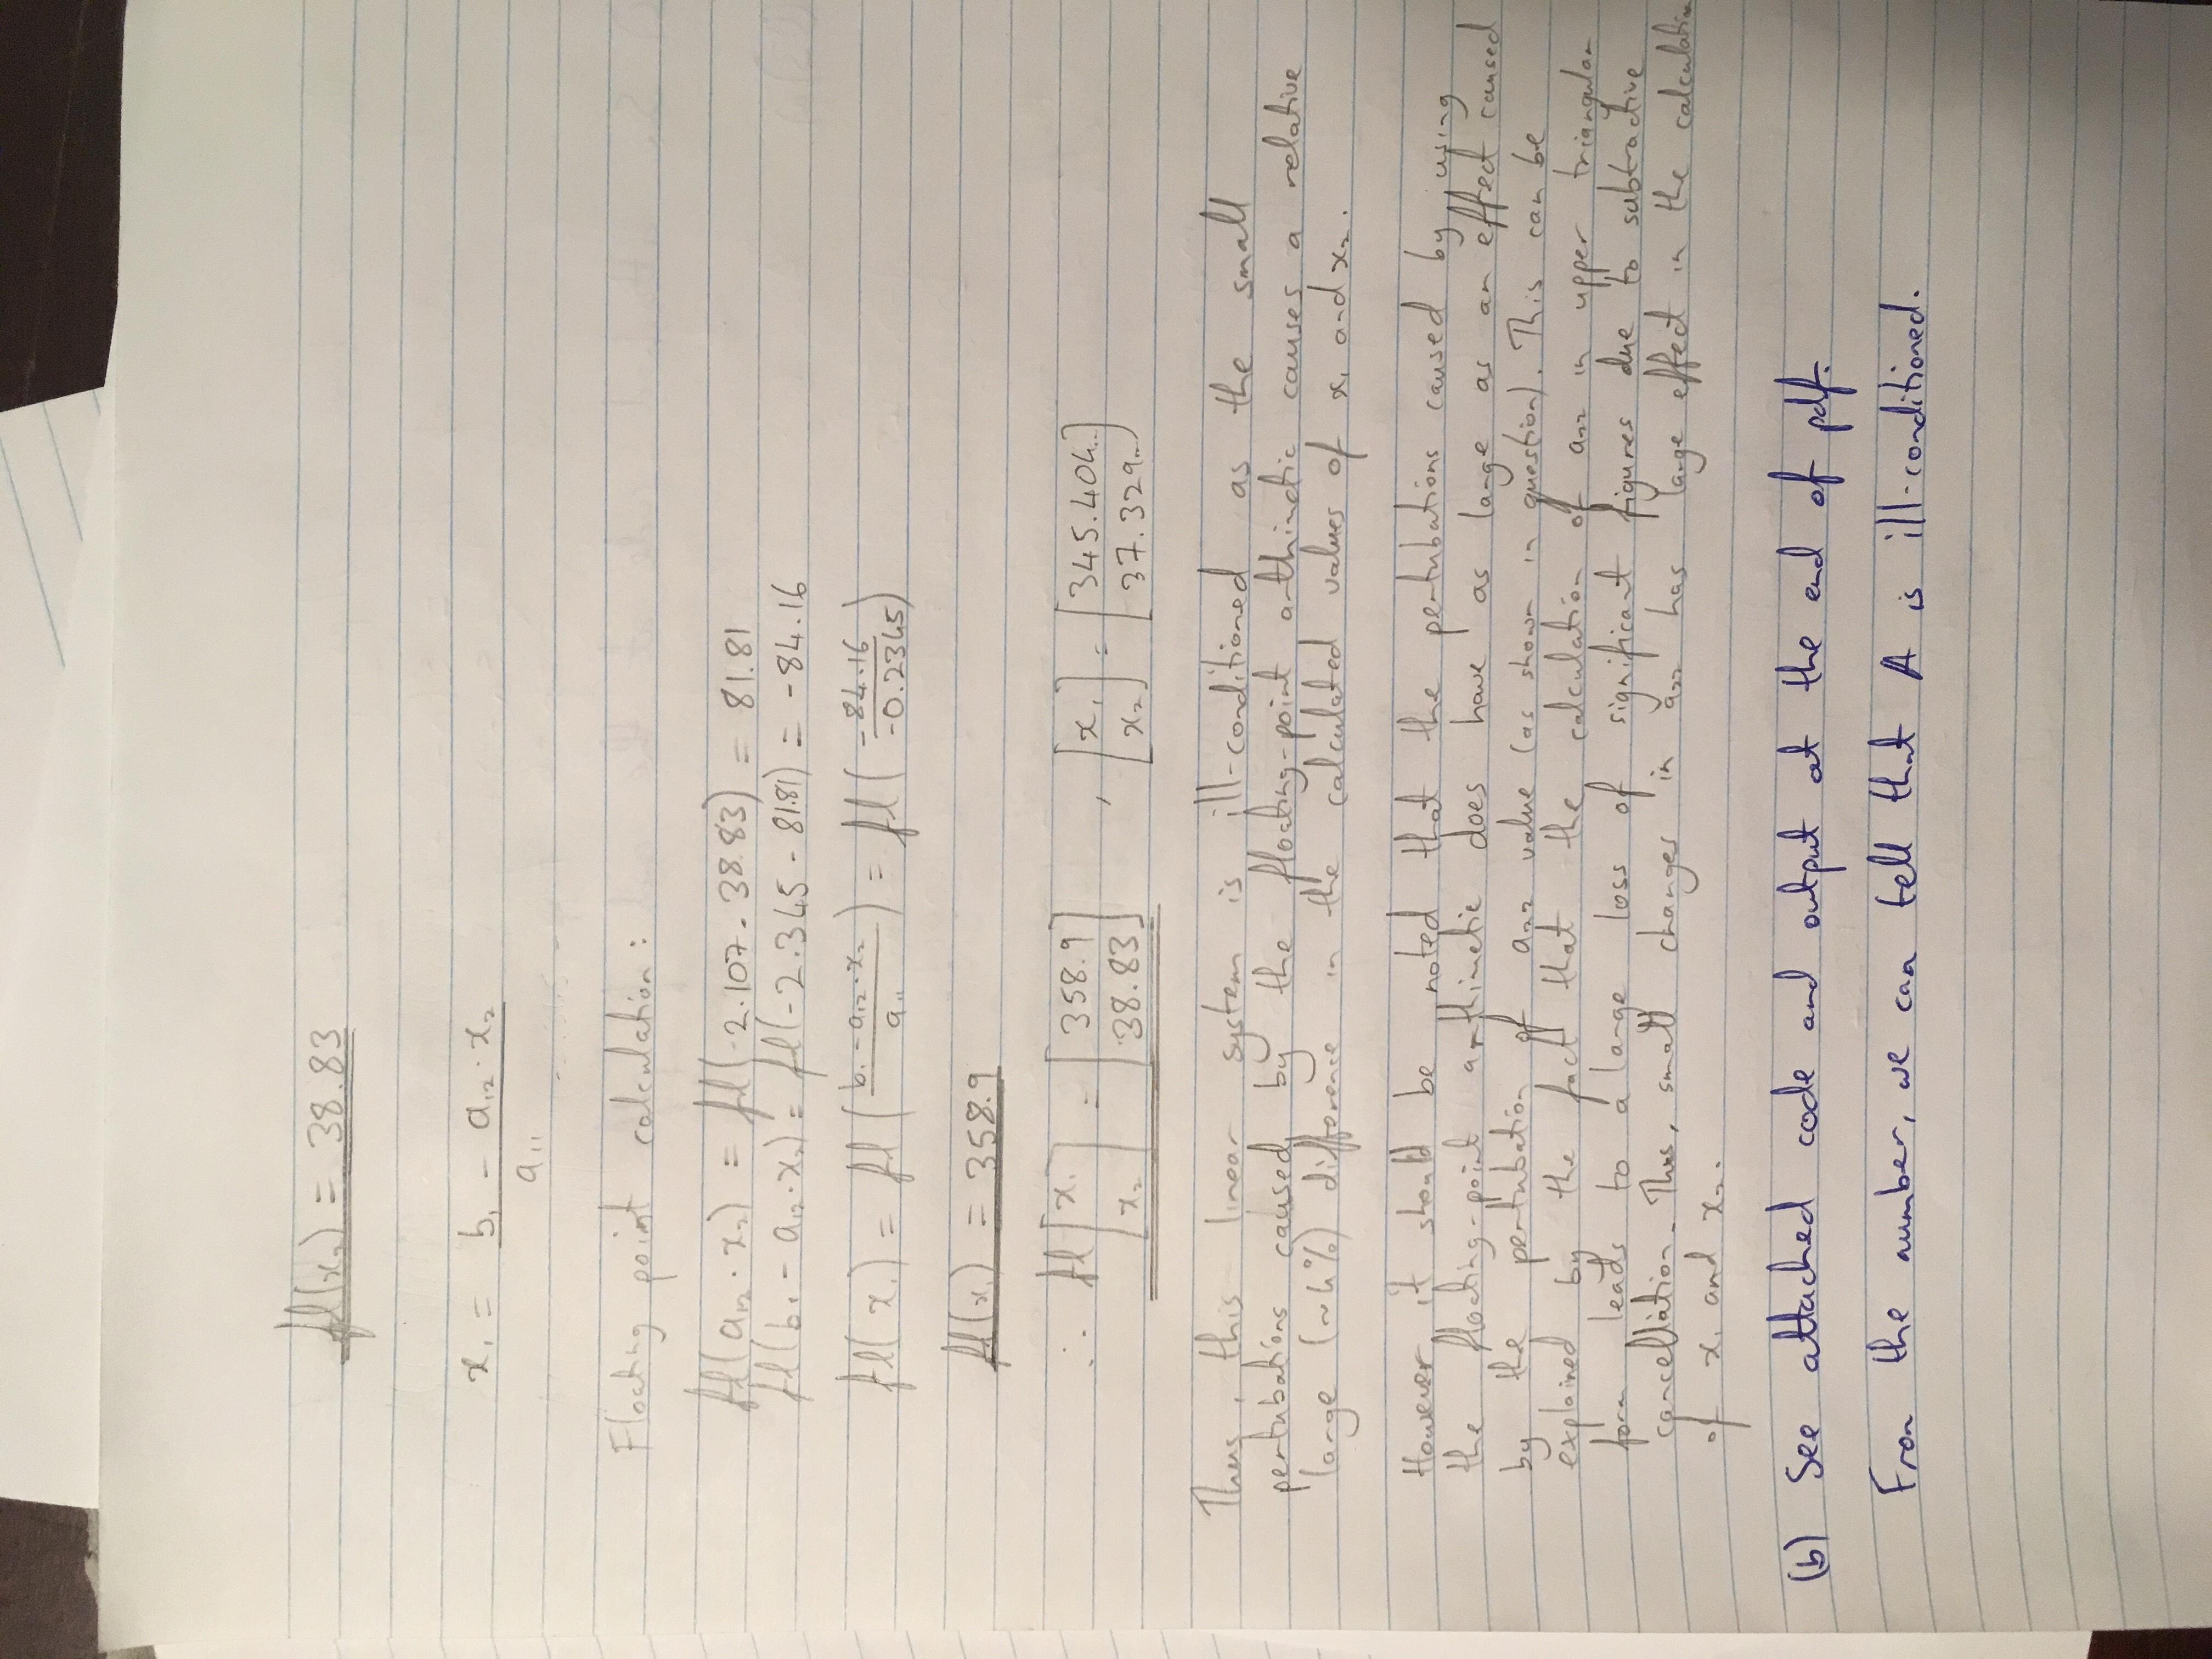 fl(x₂) = 38.83
x₁ = (b₁ - a₁₂ · x₂) / a₁₁
Floating point calculation:
fl(a₁₂ · x₂) = fl(-2.107 · 38.83) = 81.81
fl(b₁ - a₁₂ · x₂) = fl(-2.345 - 81.81) = -84.16
fl(x₁) = fl((b₁ - a₁₂ · x₂) / a₁₁) = fl(-84.16 / -0.2345)
fl(x₁) = 358.9
∴ fl[x₁ x₂] = [358.9 38.83] , [x₁ x₂] = [345.404... 37.329...]
Thus, this linear system is ill-conditioned as the small
pertubations caused by the floating-point arthimetic causes a relative
large (~4%) difference in the calculated values of x₁ and x₂.
However, it should be noted that the pertubations caused by using
the floating-point arthimetic does have as large as an effect caused
by the pertubation of a₂₂ value (as shown in question). This can be
explained by the fact that the calculation of a₂₂ in upper triangular
form leads to a large loss of significant figures due to subtractive
cancellation. Thus, small changes in a₂₂ has large effect in the calculation
of x₁ and x₂.
(b) See attached code and output at the end of pdf.
From the number, we can tell that A is ill-conditioned.